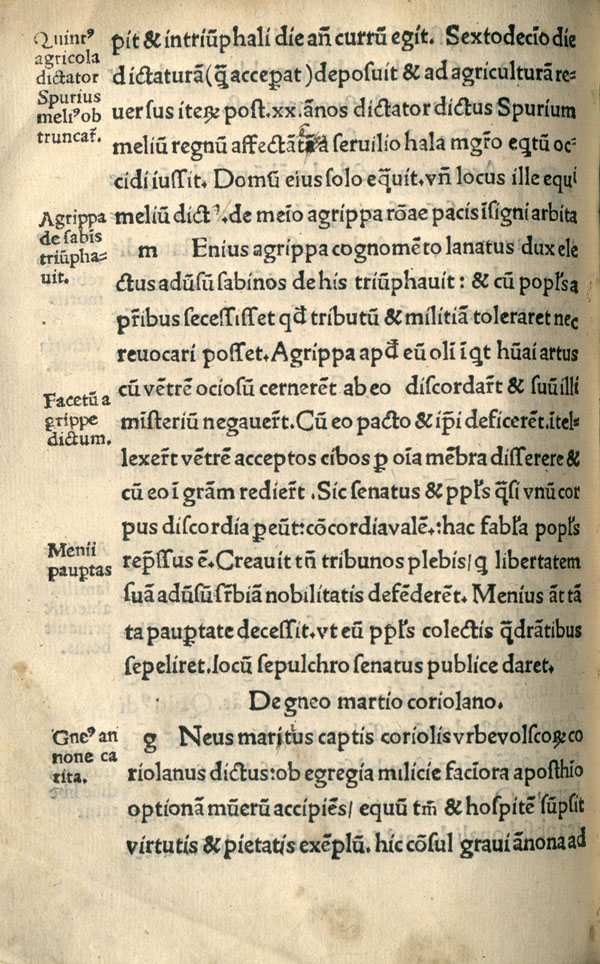 Quintꝰ
agricola
dictator
Spurius
meliꝰ ob
truncat̄.
pit & intriūphali die an̄ currū egit. Sextodecīo die
dictaturā (q̄ acceꝑat) deposuit & ad agriculturā re-
uersus iteꝝ post .xx. ānos dictator dictus Spurium
meliū regnū affectātē a seruilio hala mgr̄o eqtū oc-
cidi iussit. Domū eius solo eq̄uit. vn̄ locus ille equi
meliū dictꝰ. de meīo agrippa rōae pacis īsigni arbita
Agrippa
de sabīs
triūpha-
uit.
m Enius agrippa cognomēto lanatus dux ele
ctus adūsū sabinos de his triūphauit: & cū popl̄s a
pr̄ibus secessisset qd̄ tributū & militiā toleraret nec
reuocari posset. Agrippa apd̄ eū oli īqt hūai artus
Facetū a
grippe
dictum.
cū vētrē ociosū cernerēt ab eo discordar̄t & suū illi
misteriū negauer̄t. Cū eo pacto & ip̄i deficerēt. ītel-
lexer̄t vētrē acceptos cibos ꝑ oīa mēbra disserere &
cū eo ī grām redier̄t. Sic senatus & ppl̄s q̄si vnū cor
pus discordia ꝑeūt: cōcordia valē.: hac fabl̄a popl̄s
Menii
pauꝑtas
rep̄ssus ē. Creauit tn̄ tribunos plebis/ q libertatem
suā adūsū sr̄biā nobilitatis defēderēt. Menius āt tā
ta pauꝑtate decessit. vt eū ppl̄s colectis q̄drātibus
sepeliret. locū sepulchro senatus publice daret.
De gneo martio coriolano.
Gneꝰ an
none ca
rita.
g Neus maritus captis coriolis vrbe volscoꝝ co
riolanus dictus: ob egregia milicie faciora aposthīo
optionā mūerū accipiēs/ equū tm̄ & hospitē sūpsit
virtutis & pietatis exēplū. hic cōsul graui ānona ad